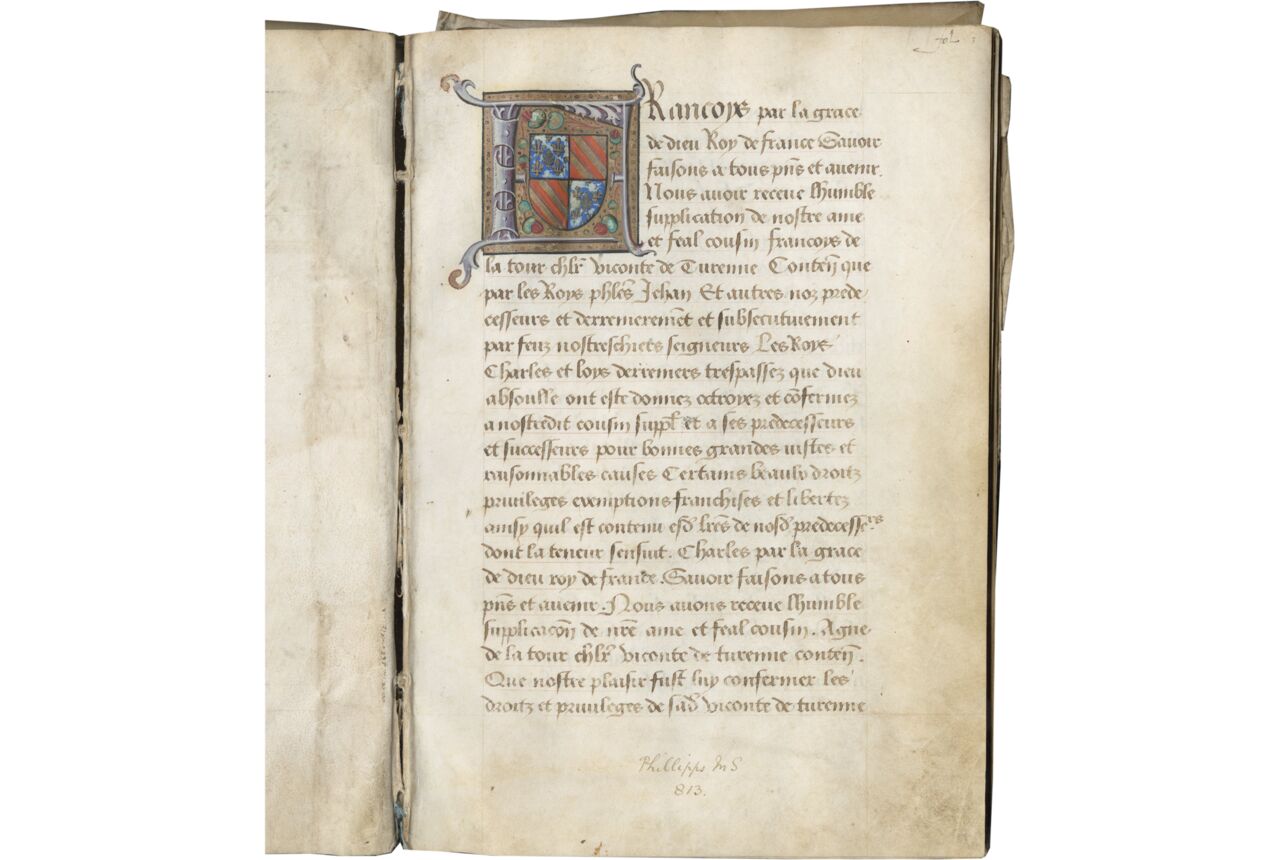 FRancoys par la grace
de dieu Roy de france Savoir
faisons a tous pñs et avenir.
Nous avoir receue lhumble
supplication de nostre ame
et feal cousin francoys de
la tour chlr̃ viconte de Turenne Conteñ que
par les Roys phles Jehan Et autres noz prede
cesseurs et derrenieremẽt et subsecutiuement
par feuz nostreschiers seigneurs Les Roys
Charles et loys derreniers trespassez que dieu
absoulle ont este donnez octroyez et cõfermez
a nostredit cousin suppl̃ et a ses predecesseurs
et successeurs pour bonnes grandes iustes et
raisonnables causes Certains beaulx droitz
priuileges exemptions franchises et libertez
ainsy quil est contenu esd̃ lr̃es de nosd̃ predecess̃ʳˢ
dont la teneur sensuit. Charles par la grace
de dieu roy de france. Savoir faisons a tous
pñs et auenir. Nous auons receue lhumble
supplicacoñ de nr̃e ame et feal cousin. Agne
de la tour chlr̃ viconte de turenne conteñ.
Que nostre plaisir fust luy confermer les
droitz et priuileges de sad̃ viconte de turenne
Phillipps MS
813.